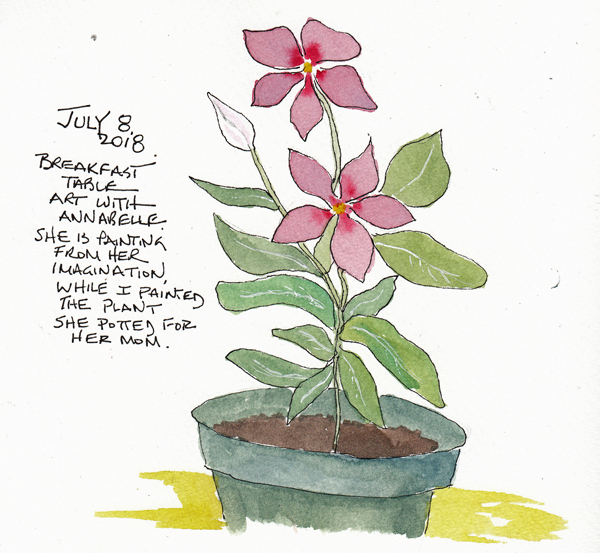 JULY 8,
2018.
BREAKFAST
TABLE
ART WITH
ANNABELLE.
SHE IS PAINTING
FROM HER
IMAGINATION,
WHILE I PAINTED
THE PLANT
SHE POTTED FOR
HER MOM.